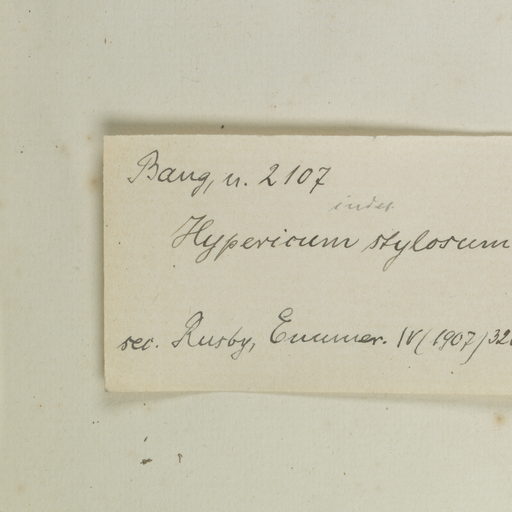 Bang, n. 2107
indet
Hypericum stylosum
sec. Rusby, Enumer. IV (1907) 32